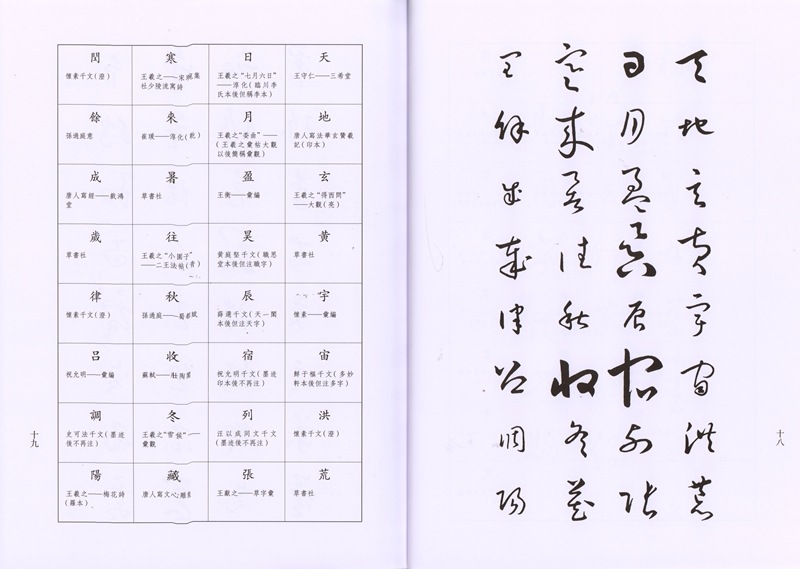 天地玄黃宇宙洪荒
日月盈昃辰宿列張
寒來暑往秋收冬藏
閏餘成歲律呂調陽
十八
天
王守仁——三希堂
地
唐人寫法華玄贊義
記(印本)
玄
王羲之“得西問”
——大觀(亮)
黃
草書社
宇
懷素——彙編
宙
鮮于樞千文(多妙
軒本後但注多字)
洪
懷素千文(澄)
荒
草書社
日
王羲之“七月六日”
——淳化(臨川李
氏本後但稱李本)
月
王羲之“委曲”——
(王羲之彙帖大觀
以後簡稱彙觀)
盈
王衡——彙編
昃
黃庭堅千文(職思
堂本後但注職字)
辰
薛選千文(天一閣
本後但注天字)
宿
祝允明千文(墨迹
印本後不再注)
列
汪以成同文千文
(墨迹後不再注)
張
王獻——草字彙
寒
王羲之——宋拓集
杜少陵流寓詩
來
崔瑗——淳化(乾)
暑
草書社
往
王羲之“小園子”
——二王法帖(有)
秋
孫過庭——景福賦
收
蘇軾——杜陶
冬
王羲之“雪候”——
彙觀
藏
唐人寫文心雕
閏
懷素千文(澄)
餘
孫過庭意
成
唐人寫經——戲鴻
堂
歲
草書社
律
懷素千文(澄)
呂
祝允明——彙編
調
史可法千文(墨迹
後不再注)
陽
王羲之——梅花詩
(羅本)
十九